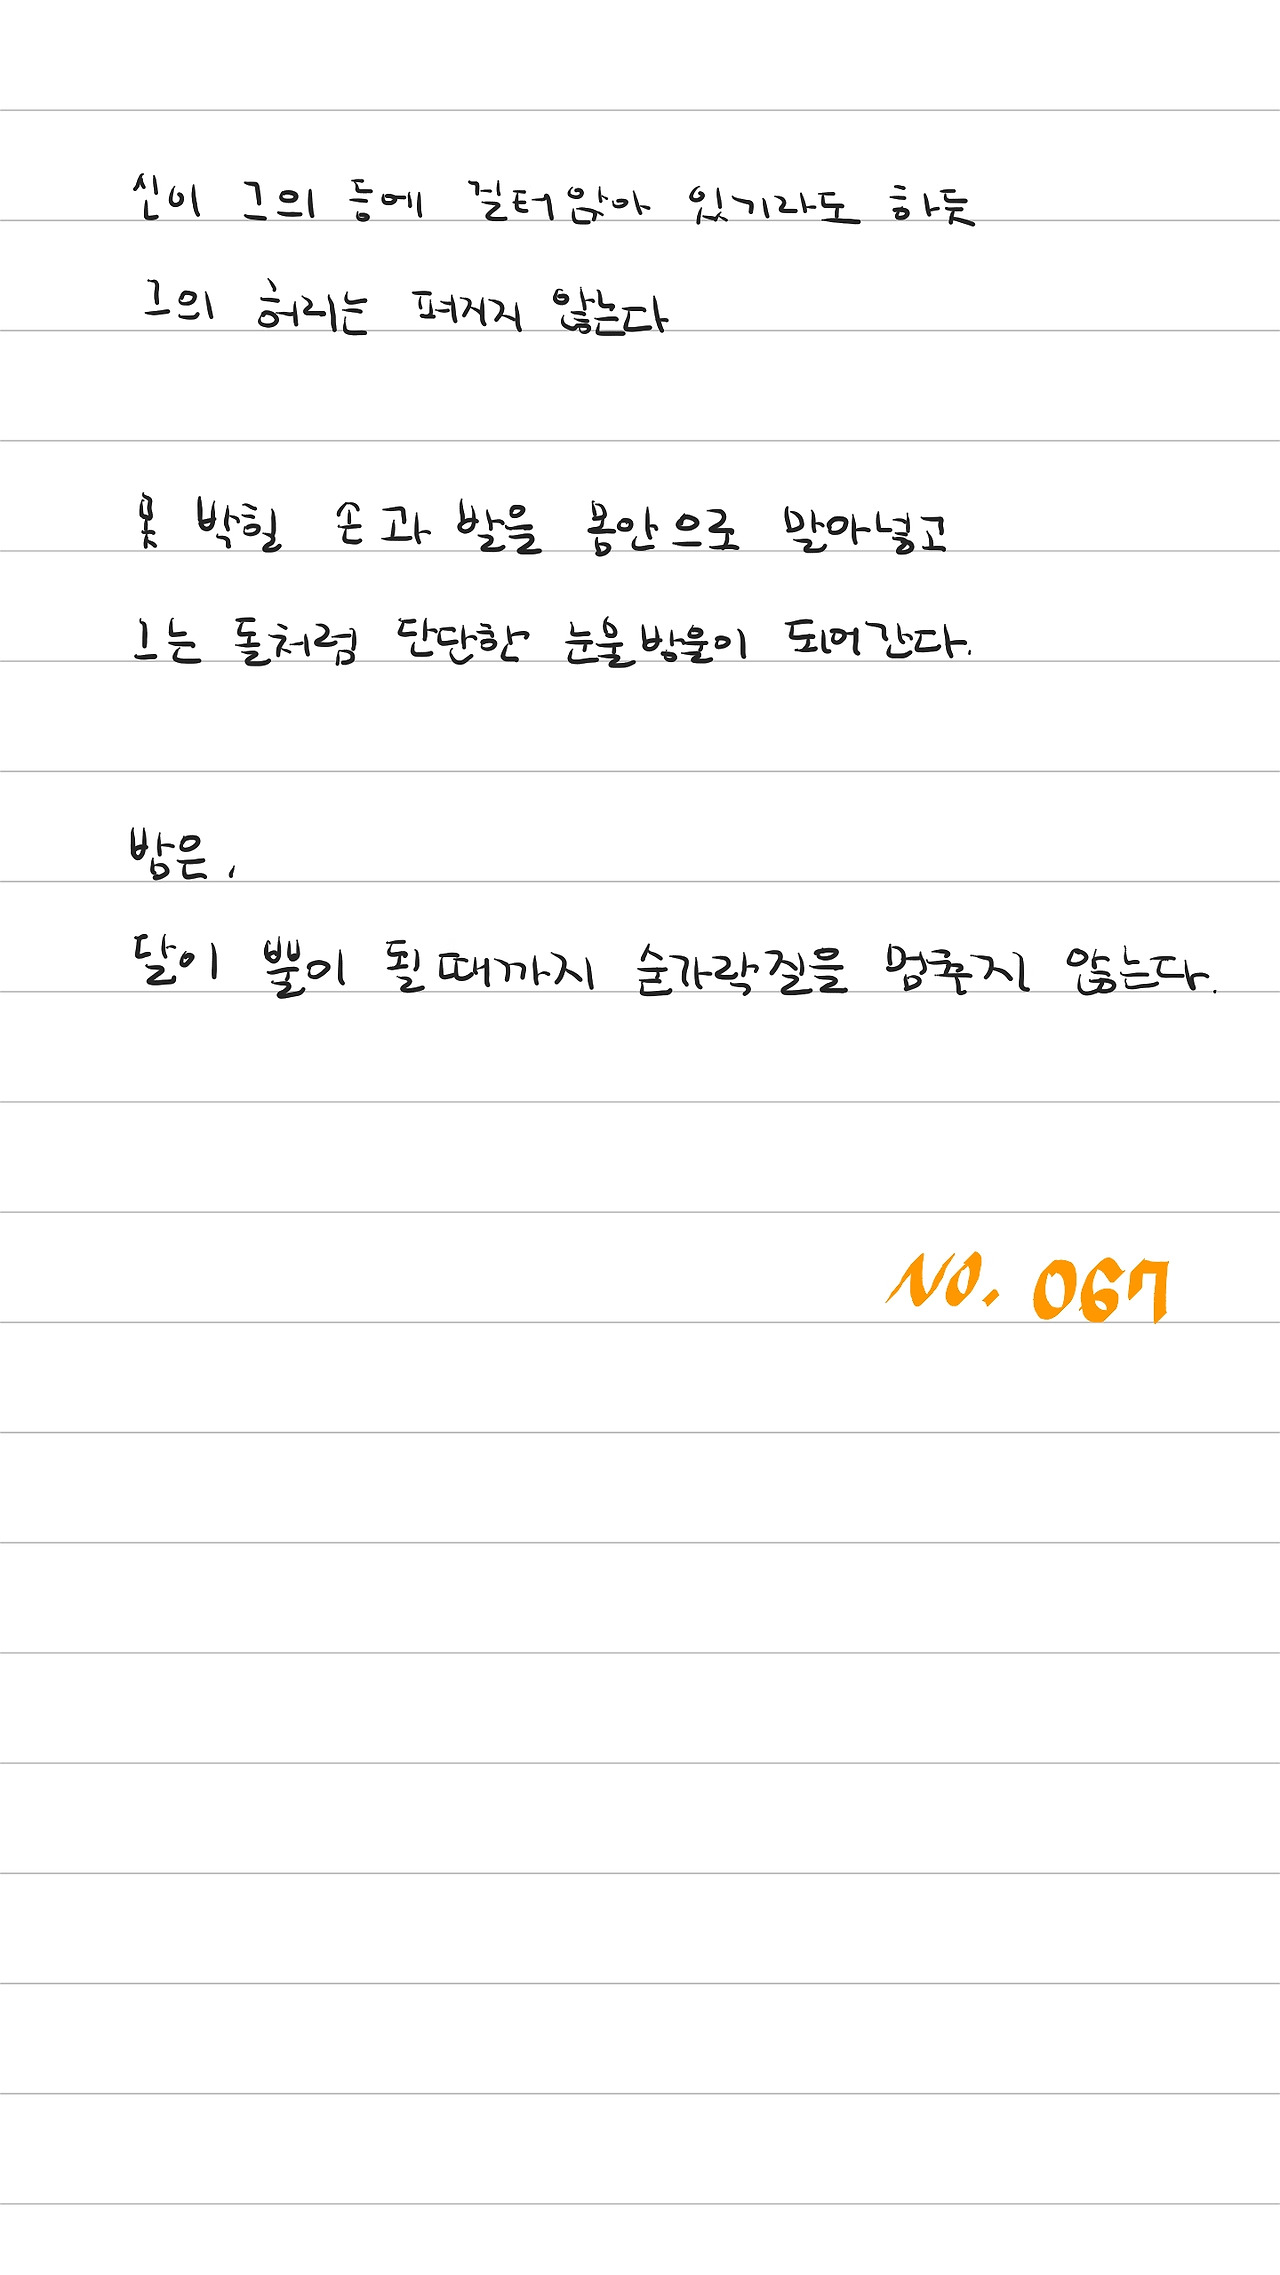 신이 그의 등에 걸터앉아 있기라도 하듯
그의 허리는 펴지지 않는다
못 박힐 손과 발을 몸안으로 말아넣고
그는 돌처럼 단단한 눈물방울이 되어간다.
밤은,
달이 뿔이 될때까지 숟가락질을 멈추지 않는다.
NO. 067